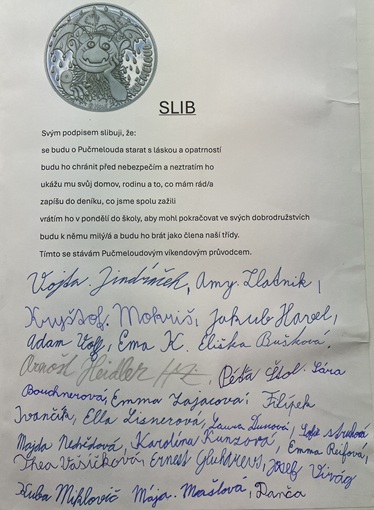 PUČMELOUD
SLIB
Svým podpisem slibuji, že:
se budu o Pučmelouda starat s láskou a opatrností
budu ho chránit před nebezpečím a neztratím ho
ukážu mu svůj domov, rodinu a to, co mám rád/a
zapíšu do deníku, co jsme spolu zažili
vrátím ho v pondělí do školy, aby mohl pokračovat ve svých dobrodružstvích
budu k němu milý/á a budu ho brát jako člena naší třídy.
Tímto se stávám Pučmeloudovým víkendovým průvodcem.
Vojta Jindráček, Amy Zlatník,
Kryštof Mokriš, Jakub Havel,
Adam Volf, Ema K. Eliška Bušková.
Arnošt Heidler Péťa Škol. Sára
Bouchnerová, Emma Zajacová, Filípek
Ivančík, Ella Lisnerová, Laura Dunová, Sofie
Majda Nedvědová, Karolína Kunzová, Emma Rúfová,
Thea Vašíčková, Ernest Josef Virág
Kuba Miklovič Mája. Mašlová, Danča